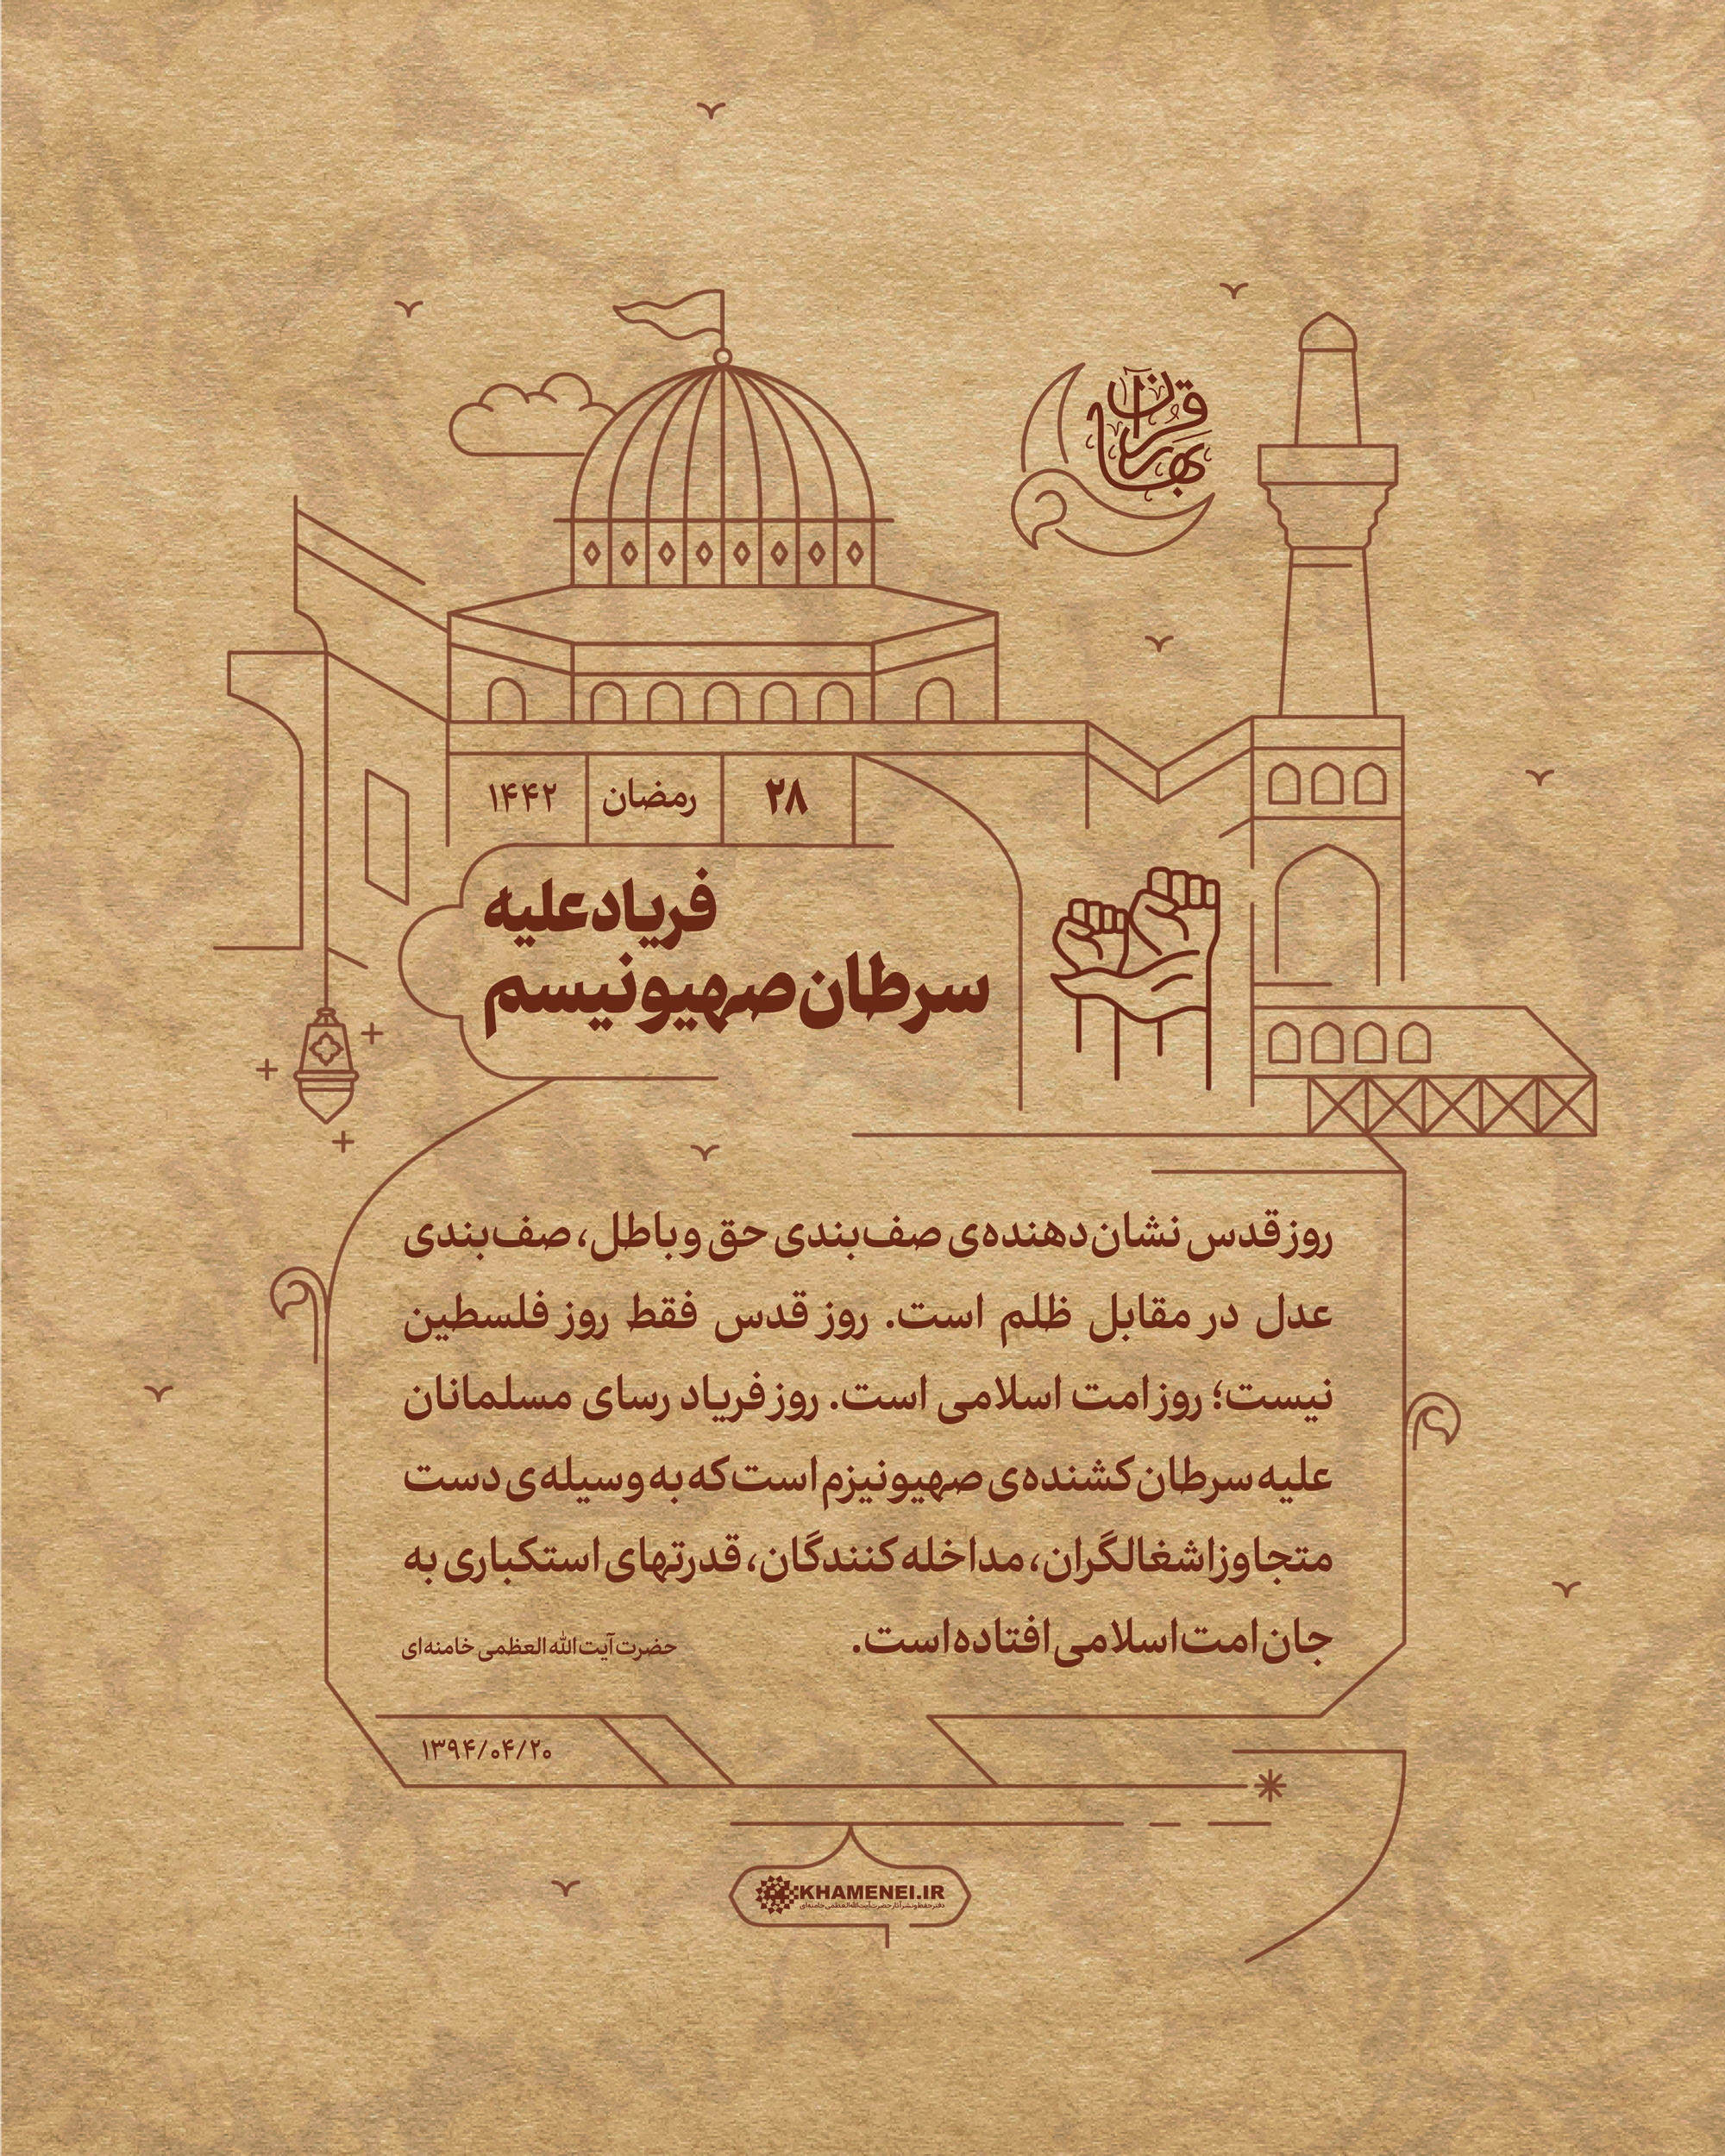 بهار قرآن
۲۸ رمضان ۱۴۴۲
فریاد علیه
سرطان صهیونیسم
روز قدس نشان‌دهنده‌ی صف‌بندی حق و باطل، صف‌بندی
عدل در مقابل ظلم است. روز قدس فقط روز فلسطین
نیست؛ روز امت اسلامی است. روز فریاد رسای مسلمانان
علیه سرطان کشنده‌ی صهیونیزم است که به وسیله‌ی دست
متجاوز اشغالگران، مداخله کنندگان، قدرتهای استکباری به
جان امت اسلامی افتاده است.
حضرت آیت‌الله العظمی خامنه‌ای
۱۳۹۴/۰۴/۲۰
KHAMENEI.IR
دفتر حفظ و نشر آثار حضرت آیت‌الله العظمی خامنه‌ای